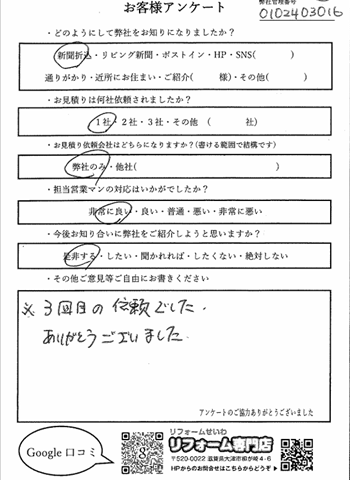 お客様アンケート
弊社管理番号
0102403016
・どのようにして弊社をお知りになりましたか?
新聞折込・リビング新聞・ポストイン・HP・SNS( )
通りがかり・近所にお住まい・ご紹介( 様)・その他( )
・お見積りは何社依頼されましたか?
1社・2社・3社・その他 ( 社)
・お見積り依頼会社はどちらになりますか?(書ける範囲で結構です)
弊社のみ・他社( )
・担当営業マンの対応はいかがでしたか?
非常に良い・良い・普通・悪い・非常に悪い
・今後お知り合いに弊社をご紹介しようと思いますか?
是非する・したい・聞かれれば・したくない・絶対しない
・その他ご意見等ご自由にお書きください
※3回目の依頼でした.
ありがとうございました.
アンケートのご協力ありがとうございました
Google 口コミ
リフォームせいわ
リフォーム専門店
〒520-0022 滋賀県大津市柳が崎4-6
HPからのお問合せはこちらからどうぞ▶